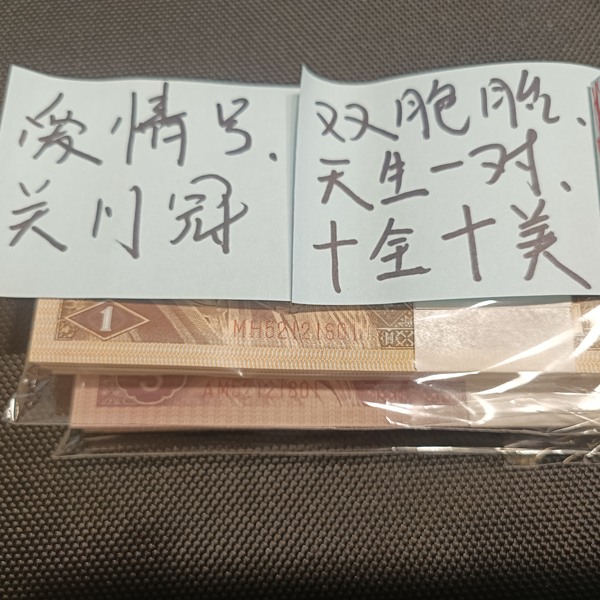 爱情号、
关门冠
双胞胎、
天生一对、
十全十美
1
MH52121801
5
AM52121801